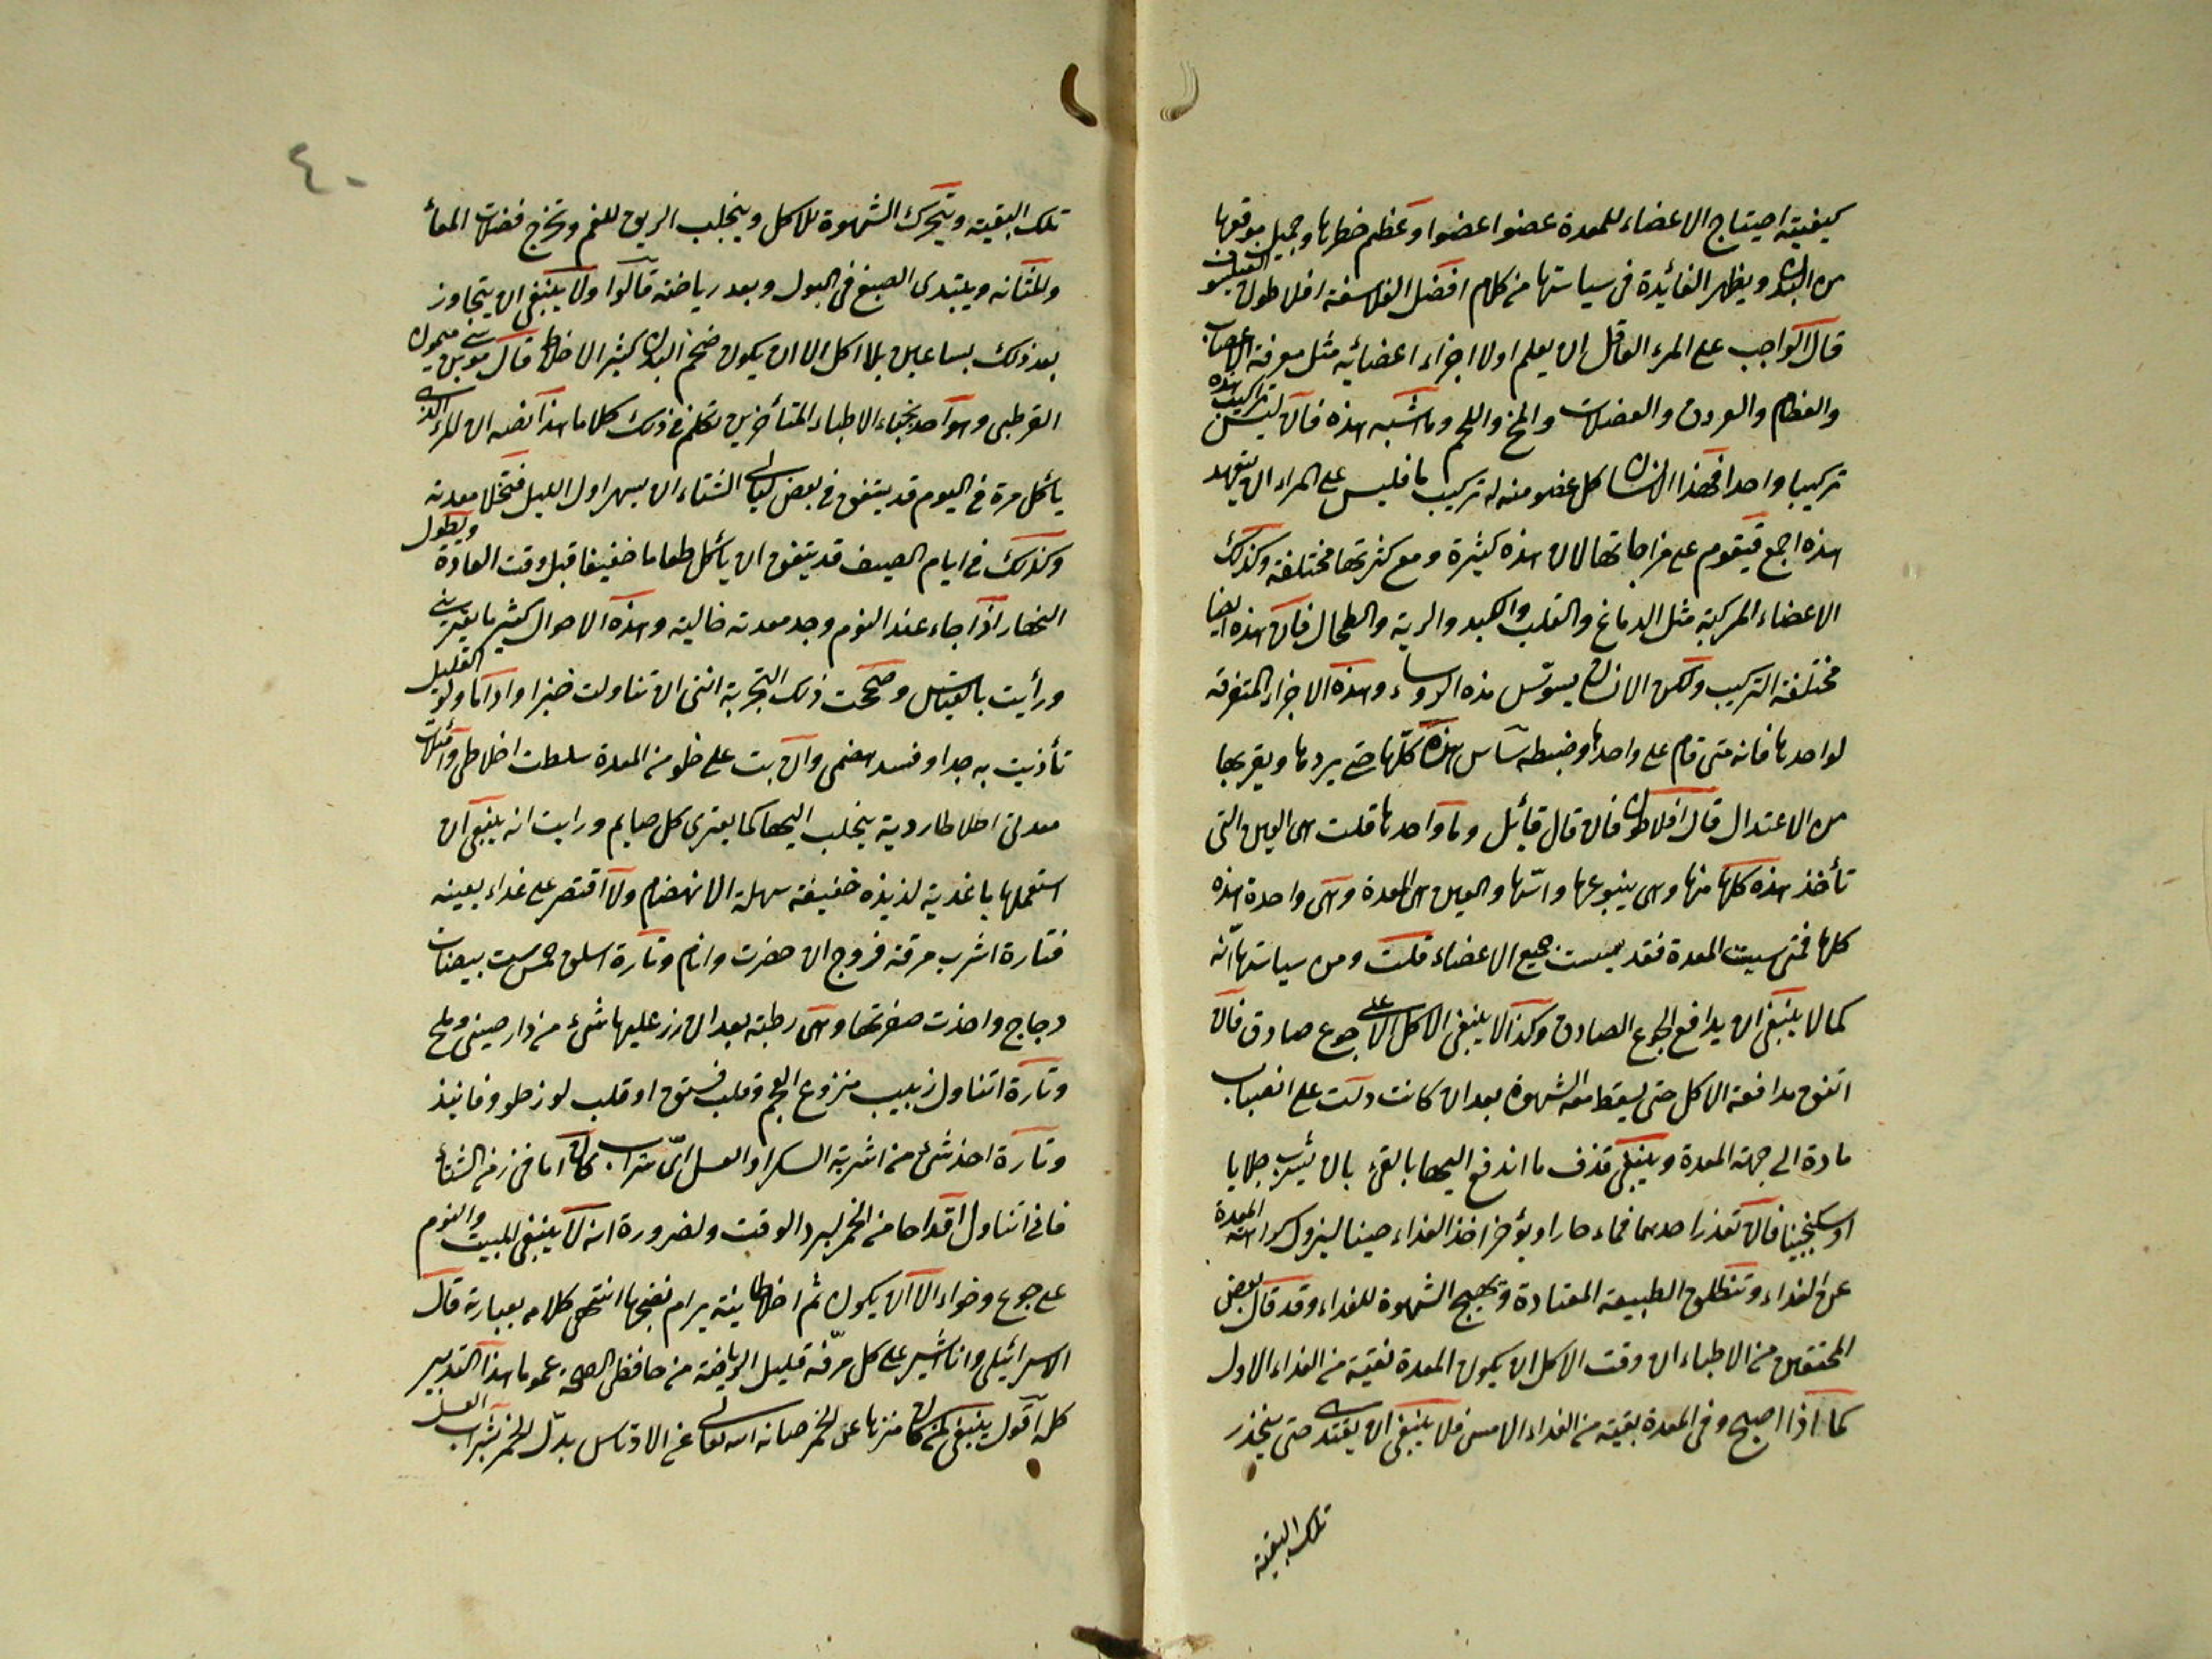 كيفية احتياج الاعضاء للمعدة عضوا عضوا وعظم خطرها وجميل موقعها
من البدن ويظهر الفائدة في سياستها من كلام افضل الفلاسفة افلاطون الفيلسوف
قال الواجب على المرء العاقل ان يعلم اولا اجزاء اعضائه مثل معرفة الاعصاب
والعظام والعروق والعضلات والمخ واللحم وما اشبه هذه فان ليس تركيب هذه
تركيبا واحدا فهذا الانسان كل عضو منه له تركيب ما فليس على المراء ان يتعهد
هذه اجمع فيقوم على مزاجاتها لان هذه كثيرة ومع كثرتها مختلفة وكذلك
الاعضاء المركبة مثل الدماغ والقلب والكبد والرية والطحال فان هذه ايضا
مختلفة التركيب ولكن الانسان يسوس هذه الروساء وهذه الاجزاء المتفرقة
لواحدها فانه متى قام على واحدها وضبطه ساس هذه كلها حتى يردها ويقربها
من الاعتدال قال افلاطون فان قال قائل وما واحدها قلت هى العين التى
تأخذ هذه كلها منها وهى ينبوعها واسها والعين هى المعدة وهى واحدة هذه
كلها فمتى سيست المعدة فقد سيست جميع الاعضاء قلت ومن سياستها انه
كما لا ينبغى ان يدافع الجوع الصادق وكذا لا ينبغى الاكل الا على جوع صادق فان
اتفق مدافعة الاكل حتى يسقط معه الشهوة بعد ان كانت دلت على انصباب
مادة الى جهة المعدة وينبغى قذف ما اندفع اليها بالقىء بان يشرب جلابا
او سكنجبينا فان تعذر احدهما فماء حارا ويؤخر اخذ الغذاء حينا ليزول كراهة المعدة
عن الغذاء وتنطلق الطبيعة المعتادة وتهيج الشهوة للغذاء وقد قال بعض
المحققين من الاطباء ان وقت الاكل ان يكون المعدة نقية من الغذاء الاول
كما اذا اصبح وفى المعدة بقية من الغذاء الامس فلا ينبغى ان يغتذى حتى ينحدر
تلك البقية
٤٠
تلك البقية ويتحرك الشهوة للاكل وينجلب الريق للفم وتخرج فضلات المعاء
والمثانة ويبتدى الصبغ فى البول وبعد رياضة قالوا ولا ينبغى ان يتجاوز
بعد ذلك بساعتين بلا اكل الا ان يكون ضخم البدن كثير الاخلاط قال موسى بن ميمون
القرطبى وهو احد نجباء الاطباء المتأخرين تكلم فى ذلك كلاما هذا نصه ان المرء الذى
يأكل مرة فى اليوم قد يتفق فى بعض ليالى الشتاء ان يسهر اول الليل فتخلا معدته
وكذلك فى ايام الصيف قد يتفق ان يأكل طعاما خفيفا قبل وقت العادة ويطول
النهار اذا جاء عند النوم وجد معدته خالية وهذه الاحوال كثير ما يعترينى
ورأيت بالقياس وصححت ذلك التجربة اننى ان تناولت خبزا واداما ولو القليل
تأذيت به جدا وفسد هضمى وان بت على خلو من المعدة سلطت اخلاطى وامتلات
معدتى اخلاطا ردية ينجلب اليها كما يعترى كل صايم ورايت انه ينبغى ان
استعملها باغدية لذيذة خفيفة سهلة الانهضام ولا اقتصر على غداء بعينه
فتارة اشرب مرقة فروج ان حضرت وانام وتارة اسلق خمس ست بيضات
دجاج واخذت صفرتها وهى رطبة بعد ان رز عليها شىء من دارصينى وملح
وتارة اتناول زبيب منزوع العجم وقلب فستق او قلب لوز حلو وفانيذ
وتارة اخذ شئ من اشربة السكر او العسل اى شراب كان اما فى زمن الشتاء
فانى اتناول اقداحا من الخمر لبرد الوقت ولضرورة انه لا ينبغى المبيت والنوم
على جوع وخواء الا ان يكون ثم اخلاط نيئة يرام نضجها انتهى كلامه بعبارته قال
الاسرائيلى وانا اشير على كل مرفه قليل الرياضة من حافظى الصحة عموما هذا التدبير
كله اقول ينبغى لمن كان منزها عن الخمر صانه الله تعالى عن الادناس بدل الخمر شراب العسل